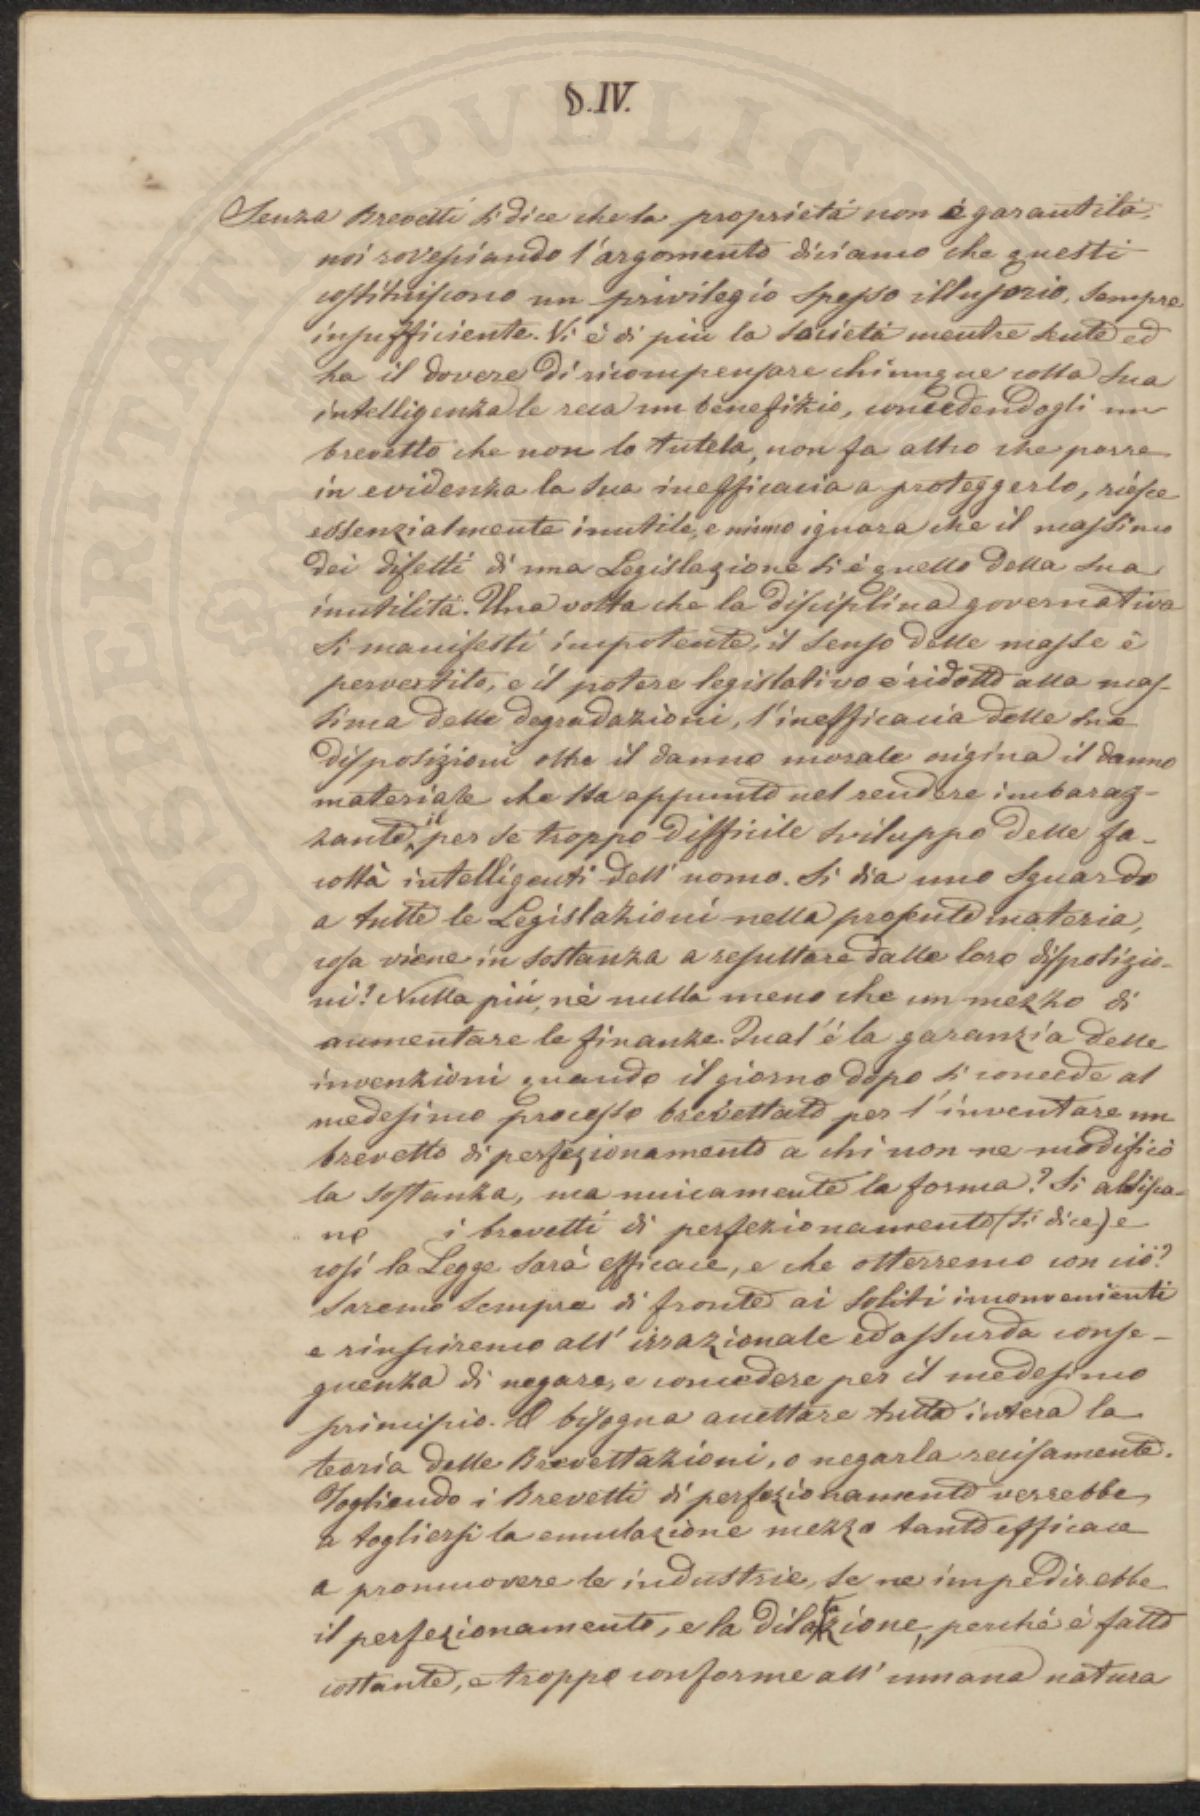 §. IV.
Senza Brevetti si dice che la proprietà non è garantita,
noi rovesciando l'argomento diciamo che questi
costituiscono un privilegio spesso illusorio, sempre
insufficiente. Vi è di più la società mentre sente ed
ha il dovere di ricompensare chiunque colla sua
intelligenza le reca un benefizio, concedendogli un
brevetto che non lo tutela, non fa altro che porre
in evidenza la sua inefficacia a proteggerlo, riesce
essenzialmente inutile, e niuno ignora che il massimo
dei difetti di una Legislazione si è quello della sua
inutilità. Una volta che la disciplina governativa
si manifesti impotente, il senso delle masse è
pervertito, e il potere legislativo è ridotto alla mas-
sima delle degradazioni, l'inefficacia delle sue
disposizioni oltre il danno morale origina il danno
materiale che sta appunto nel rendere imbaraz-
zante, il per se troppo difficile sviluppo delle fa-
coltà intelligenti dell'uomo. Si dia uno sguardo
a tutte le Legislazioni nella presente materia,
cosa viene in sostanza a resultare dalle loro disposizio-
ni? Nulla più, nè nulla meno che un mezzo di
aumentare le finanze. Qual'è la garanzia delle
invenzioni quando il giorno dopo si concede al
medesimo processo brevettato per l'inventare un
brevetto di perfezionamento a chi non ne modificò
la sostanza, ma unicamente la forma? Si abolisca-
no i brevetti di perfezionamento (si dice) e
così la Legge sarà efficace, e che otterremo con ciò?
Saremo sempre di fronte ai soliti inconvenienti
e riusciremo all'irrazionale ed assurda conse-
guenza di negare, e concedere per il medesimo
principio. O bisogna accettare tutta intera la
teoria delle Brevettazioni, o negarla recisamente.
Togliendo i Brevetti di perfezionamento verrebbe
a togliersi la emulazione mezzo tanto efficace
a promuovere le industrie, se ne impedirebbe
il perfezionamento, e la dilatazione, perchè è fatto
costante, e troppo conforme all'umana natura
SOSPERITATI PUBLICAE